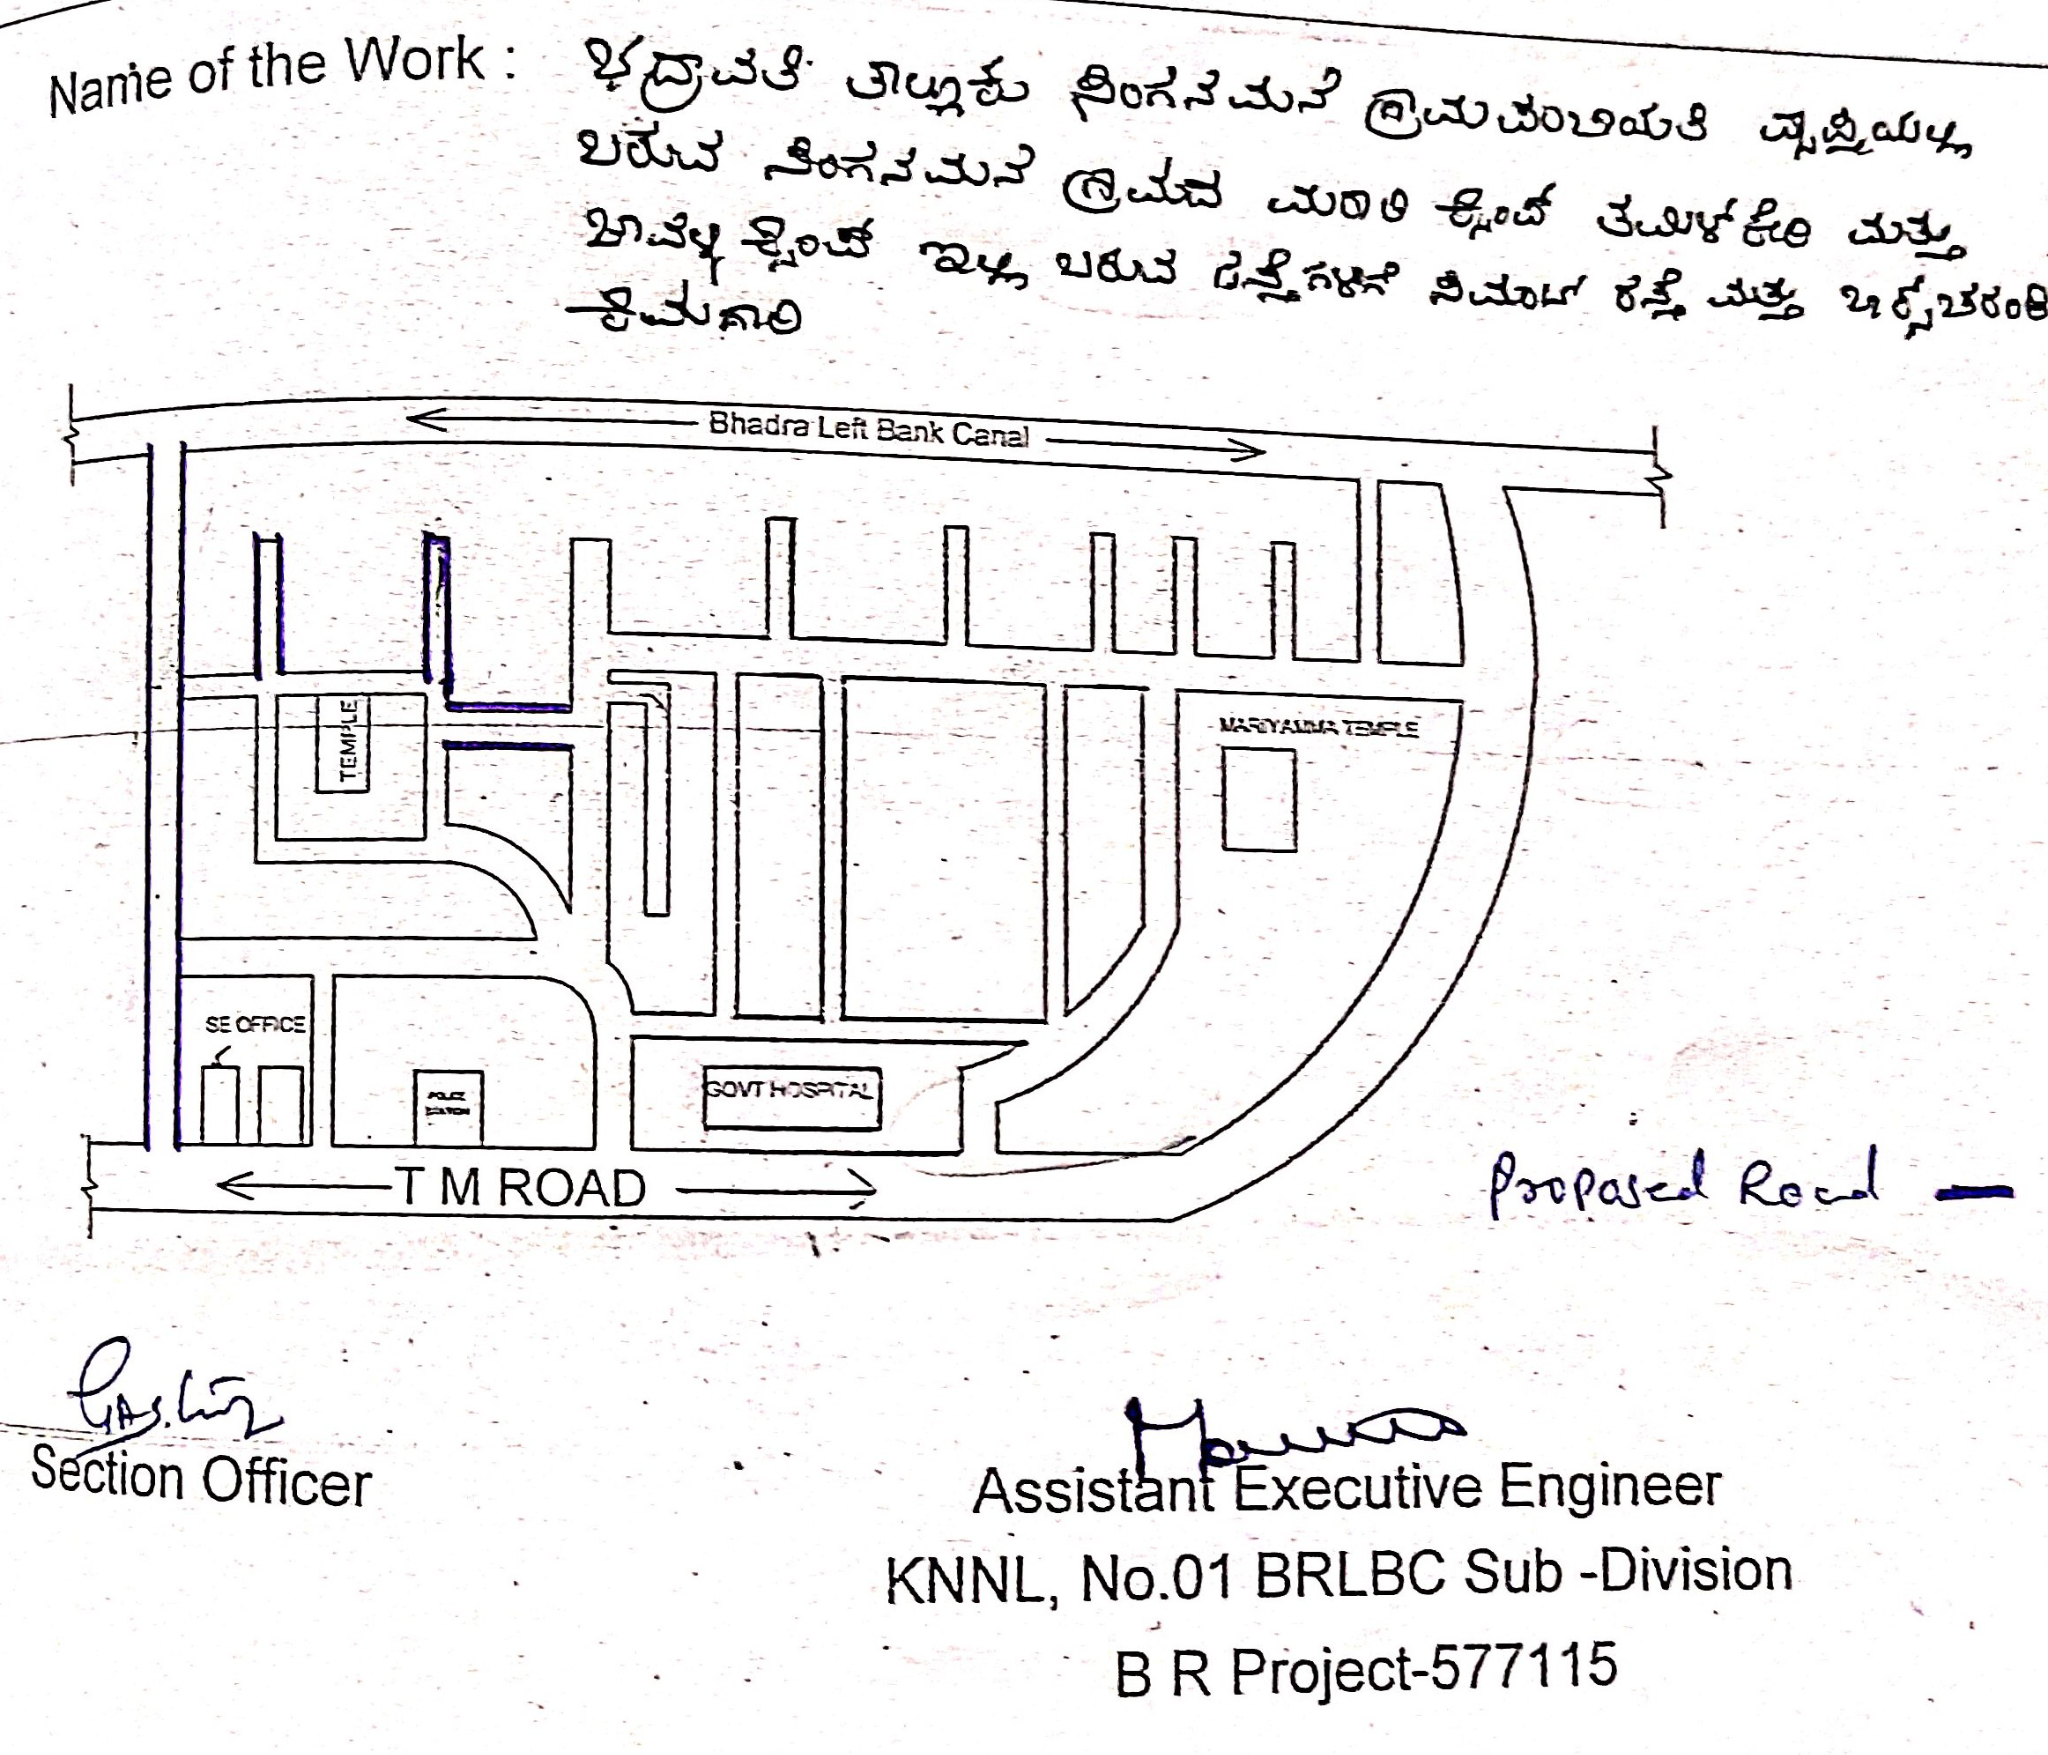 Name of the Work : ಭದ್ರಾವತಿ ತಾಲ್ಲೂಕು ಸಿಂಗನಮನೆ ಗ್ರಾಮಪಂಚಾಯತಿ ವ್ಯಾಪ್ತಿಯಲ್ಲಿ
ಬರುವ ಸಿಂಗನಮನೆ ಗ್ರಾಮದ ಮರಾಠಿ ಕ್ಯಾಂಪ್ ತಮಿಳ್ ಕೇರಿ ಮತ್ತು
ಕ್ಯಾಂಪ್ ಇಲ್ಲಿ ಬರುವ ರಸ್ತೆಗಳಿಗೆ ಸಿಮೆಂಟ್ ರಸ್ತೆ ಮತ್ತು ಬಾಕ್ಸ್ ಚರಂಡಿ
ಕಾಮಗಾರಿ
Bhadra Left Bank Canal
TEMPLE
MARIYAMMA TEMPLE
SE OFFICE
POLICE
STATION
GOVT HOSPITAL
T M ROAD
Proposed Road
Section Officer
Assistant Executive Engineer
KNNL, No.01 BRLBC Sub -Division
B R Project-577115